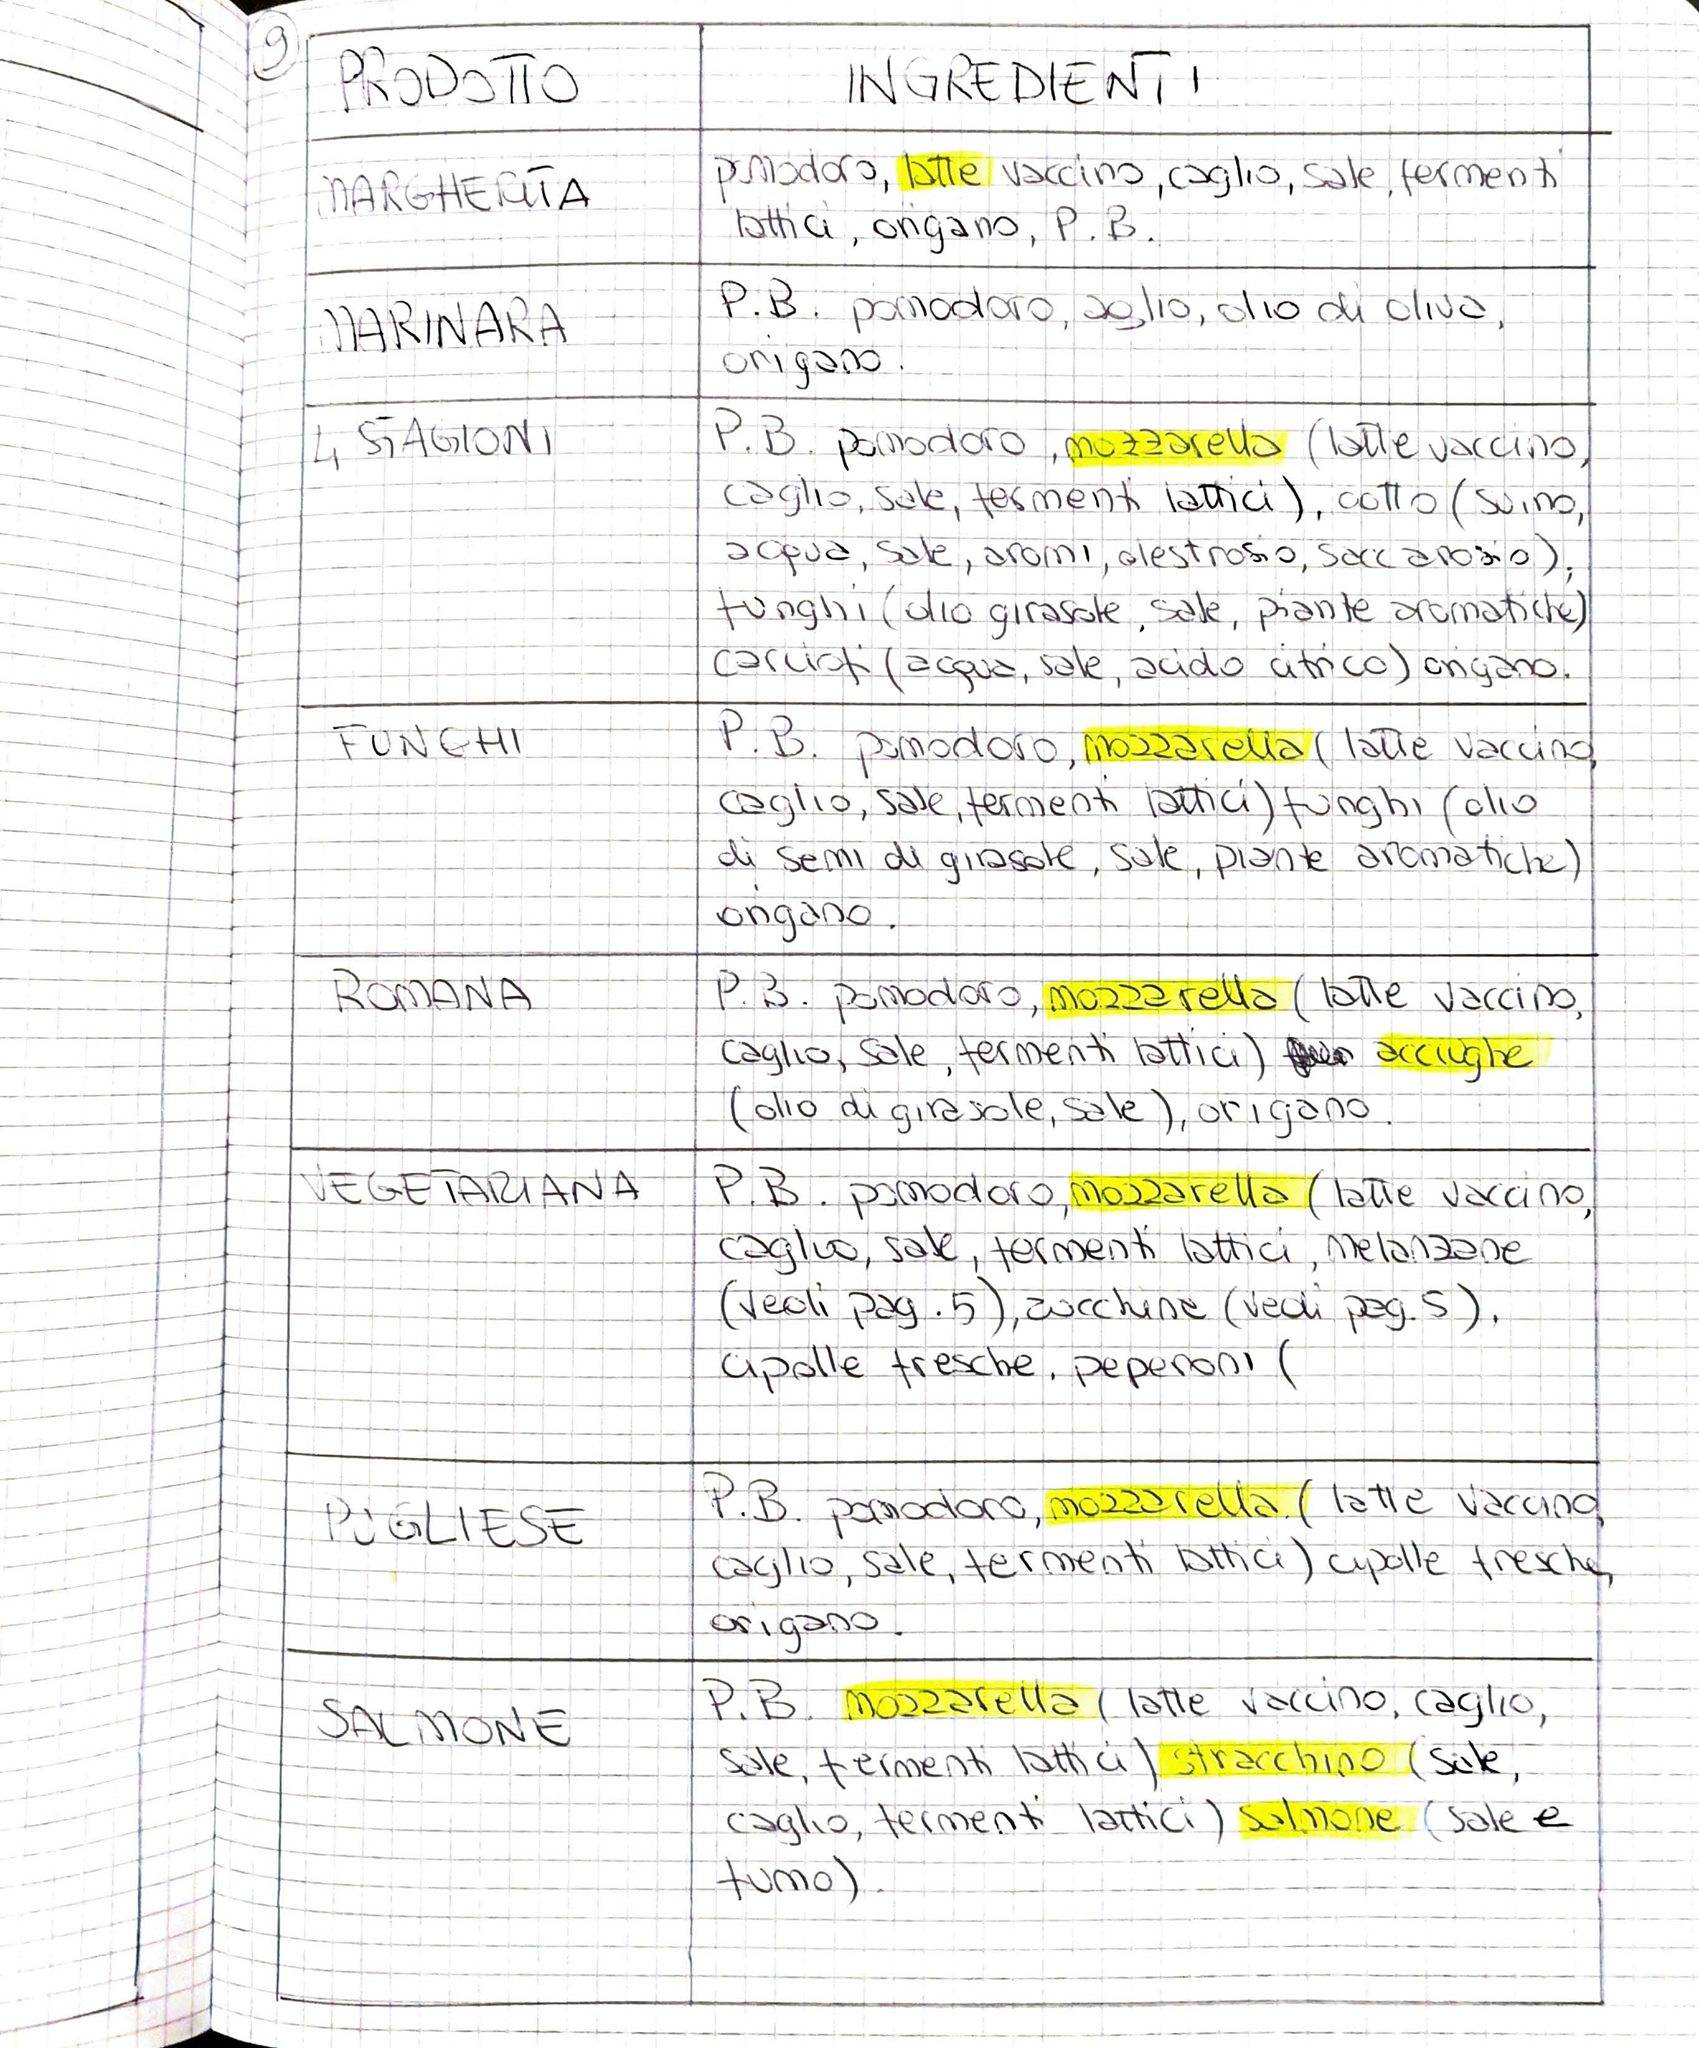 9
PRODOTTO INGREDIENTI
MARGHERITA
pomodoro, latte vaccino, caglio, sale, fermenti
lattici, origano, P.B.
MARINARA
P.B. pomodoro, aglio, olio di oliva,
origano.
4 STAGIONI
P.B. pomodoro, mozzarella (latte vaccino,
caglio, sale, fermenti lattici), cotto (suino,
acqua, sale, aromi, destrosio, saccarosio),
funghi (olio girasole, sale, piante aromatiche)
carciofi (acqua, sale, acido citrico) origano.
FUNGHI
P.B. pomodoro, mozzarella (latte vaccino,
caglio, sale, fermenti lattici) funghi (olio
di semi di girasole, sale, piante aromatiche)
origano.
ROMANA
P.B. pomodoro, mozzarella (latte vaccino,
caglio, sale, fermenti lattici) acciughe
(olio di girasole, sale), origano.
VEGETARIANA
P.B. pomodoro, mozzarella (latte vaccino,
caglio, sale, fermenti lattici, melanzane
(vedi pag. 5), zucchine (vedi pag. 5),
cipolle fresche, peperoni (
PUGLIESE
P.B. pomodoro, mozzarella (latte vaccino,
caglio, sale, fermenti lattici) cipolle fresche,
origano.
SALMONE
P.B. mozzarella (latte vaccino, caglio,
sale, fermenti lattici) stracchino (sale,
caglio, fermenti lattici) salmone (sale e
fumo).